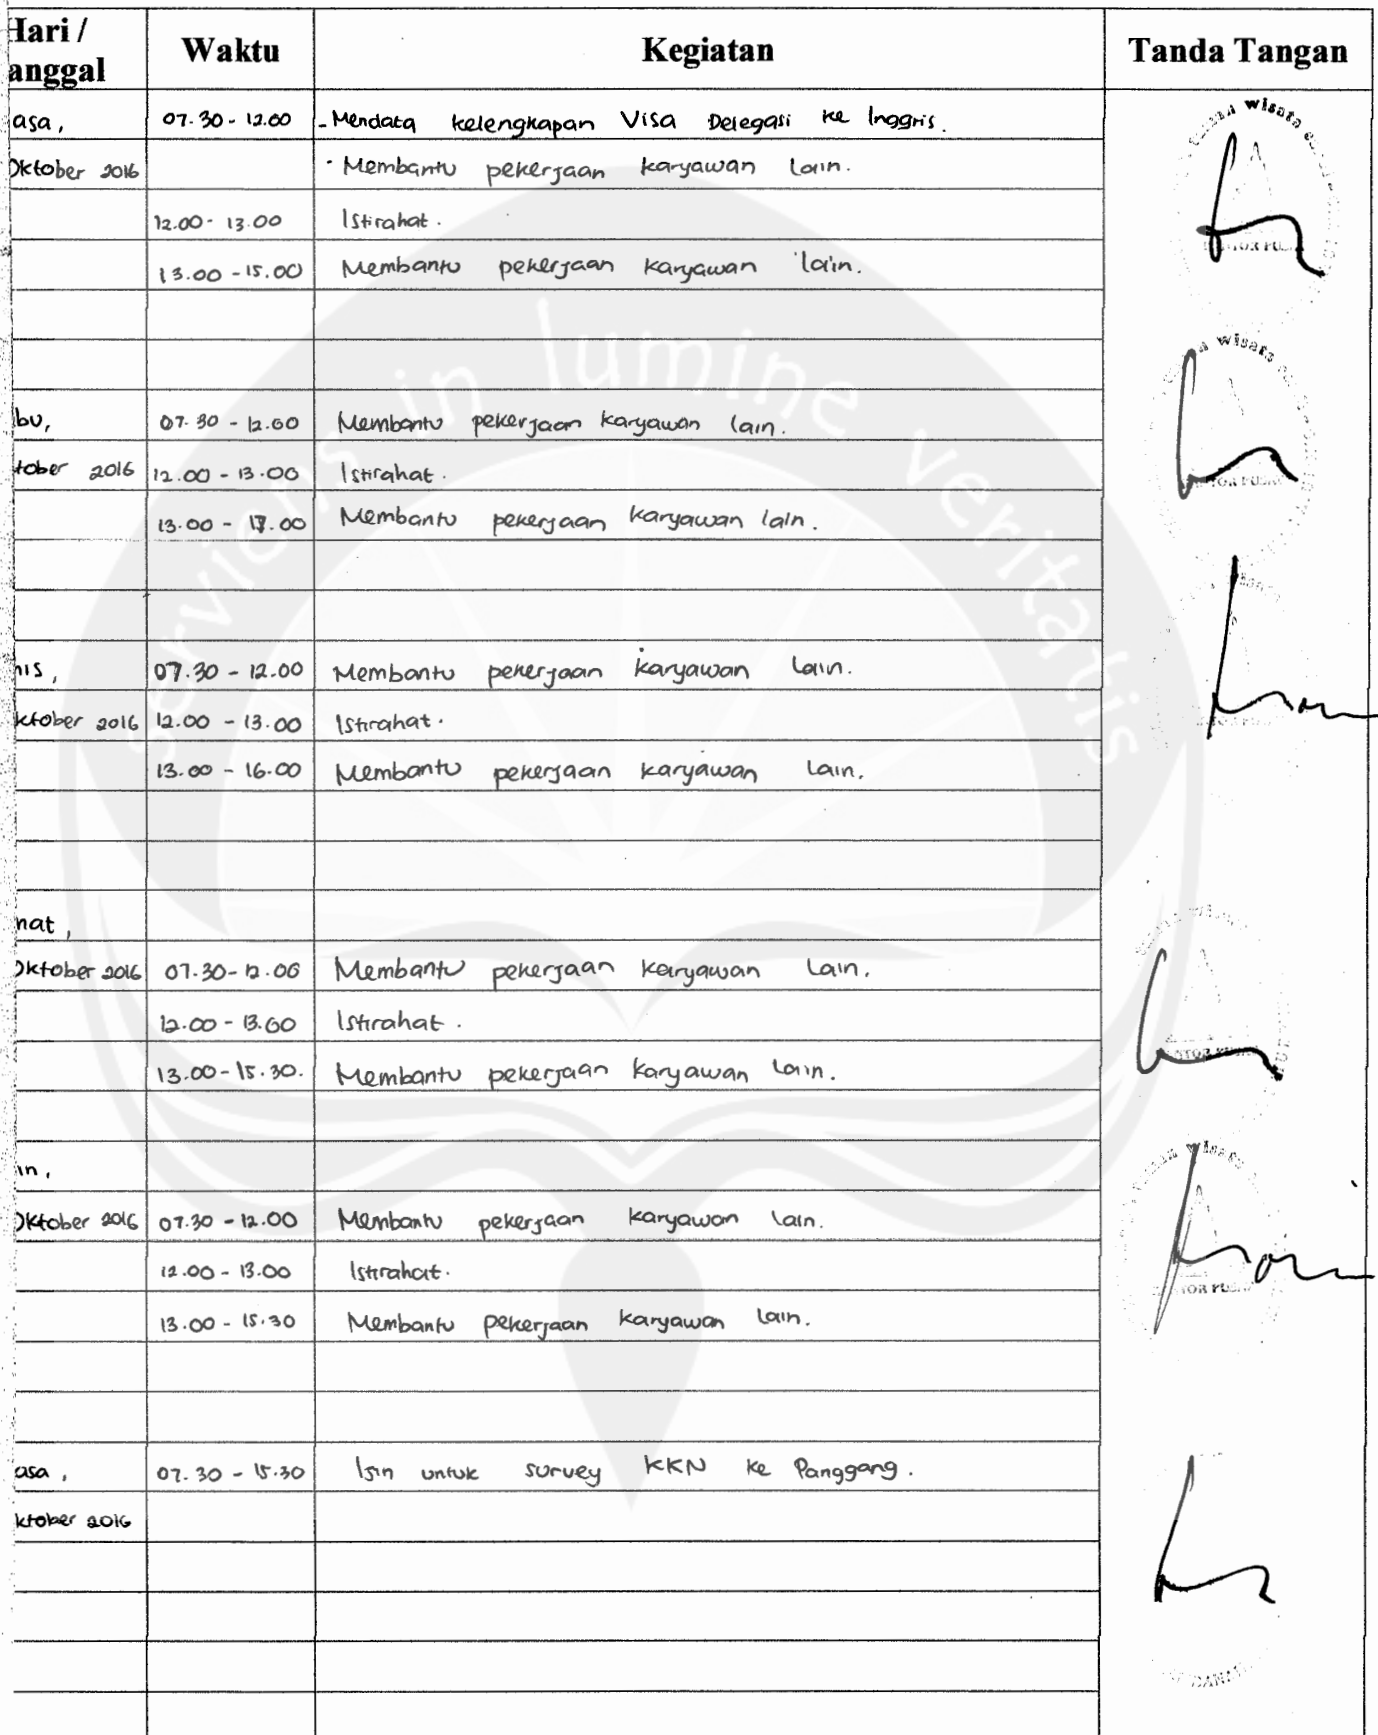 Hari / Tanggal Waktu Kegiatan Tanda Tangan
asa, 07.30 - 12.00 - Mendata kelengkapan Visa Delegasi ke Inggris.
Oktober 2016 - Membantu pekerjaan karyawan lain.
12.00 - 13.00 Istirahat.
13.00 - 15.00 Membantu pekerjaan karyawan lain.
servicns in lumine veritatis
bu, 07.30 - 12.00 Membantu pekerjaan karyawan lain.
tober 2016 12.00 - 13.00 Istirahat.
13.00 - 17.00 Membantu pekerjaan karyawan lain.
mis, 07.30 - 12.00 Membantu pekerjaan karyawan lain.
ktober 2016 12.00 - 13.00 Istirahat.
13.00 - 16.00 Membantu pekerjaan karyawan lain.
mat,
Oktober 2016 07.30 - 12.00 Membantu pekerjaan karyawan lain.
12.00 - 13.00 Istirahat.
13.00 - 15.30. Membantu pekerjaan karyawan lain.
in,
Oktober 2016 07.30 - 12.00 Membantu pekerjaan karyawan lain.
12.00 - 13.00 Istirahat.
13.00 - 15.30 Membantu pekerjaan karyawan lain.
asa, 07.30 - 15.30 Isin untuk survey KKN ke Panggang.
ktober 2016